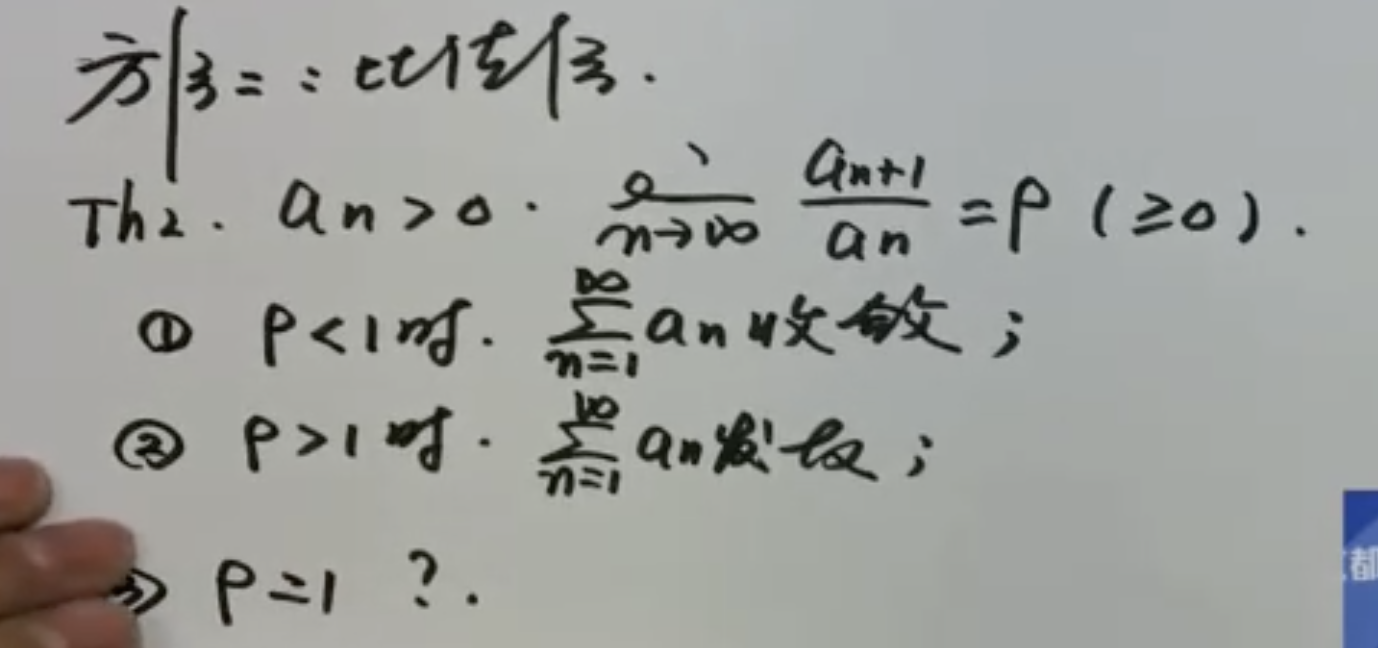 方法二:比值法.
Th2. an>0. lim n→∞ an+1/an =ρ (≥0).
① ρ<1时. ∞∑n=1 an收敛;
② ρ>1时. ∞∑n=1 an发散;
③ ρ=1 ?.
都